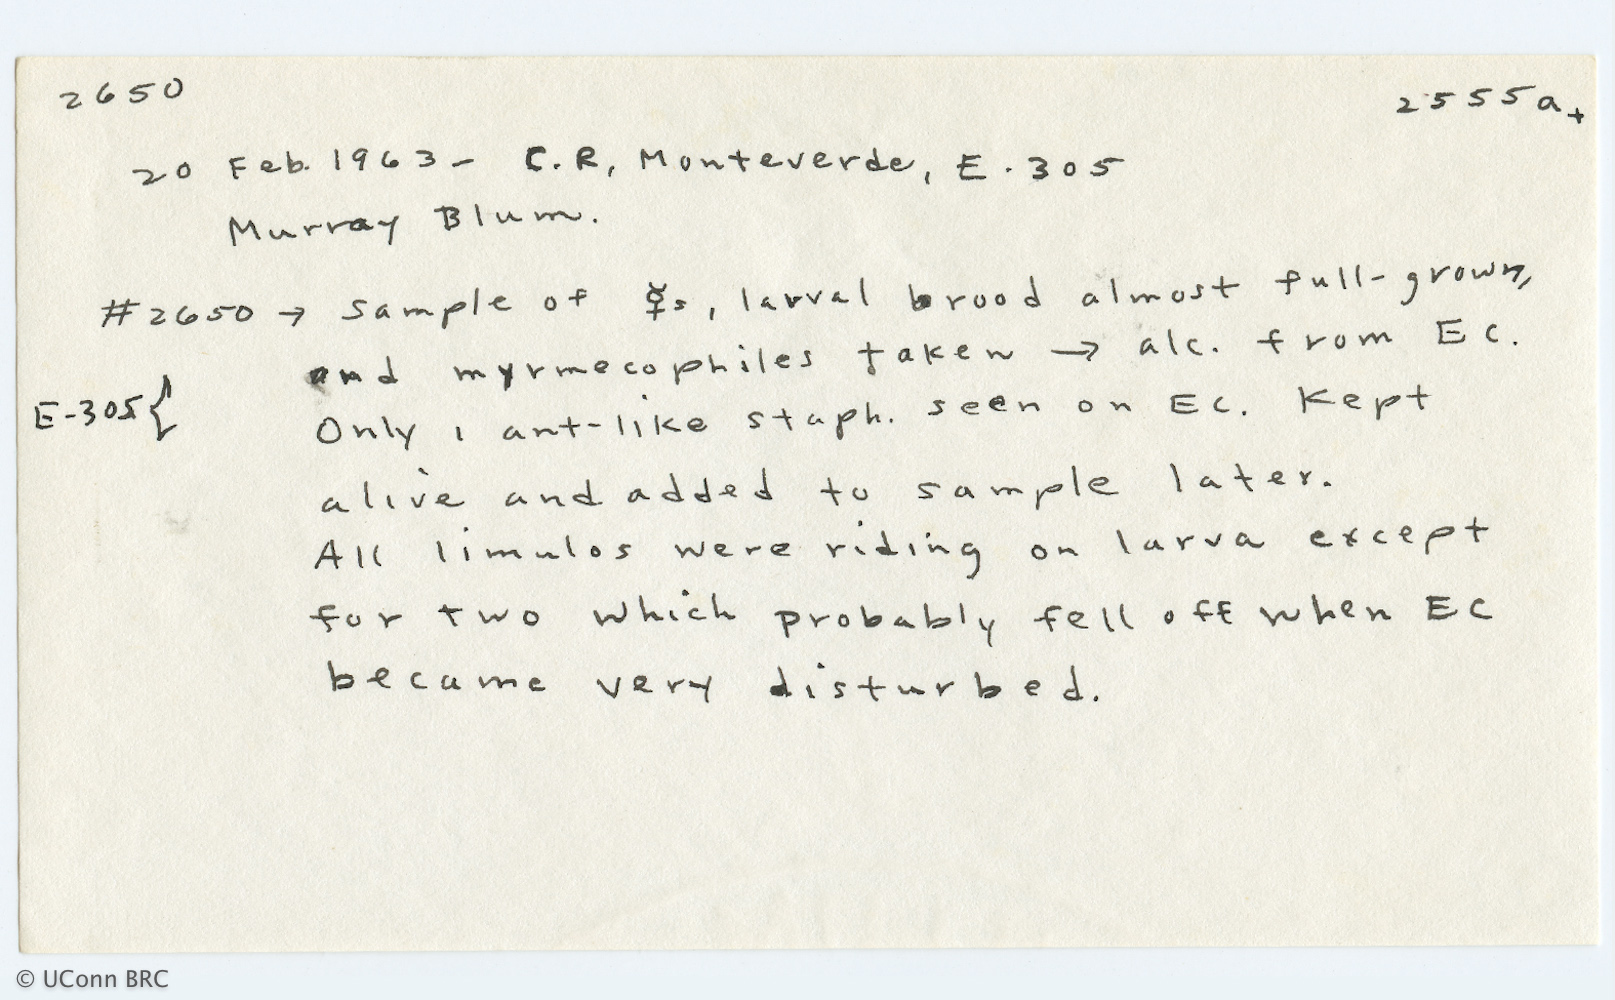 2650 2555a+
20 Feb. 1963 - C.R, Monteverde, E.305
Murray Blum.
#2650 → sample of ☿s, larval brood almost full-grown,
and myrmecophiles taken → alc. from Ec.
E-305{
Only 1 ant-like staph. seen on Ec. Kept
alive and added to sample later.
All limulos were riding on larva except
for two which probably fell off when EC
became very disturbed.
© UConn BRC